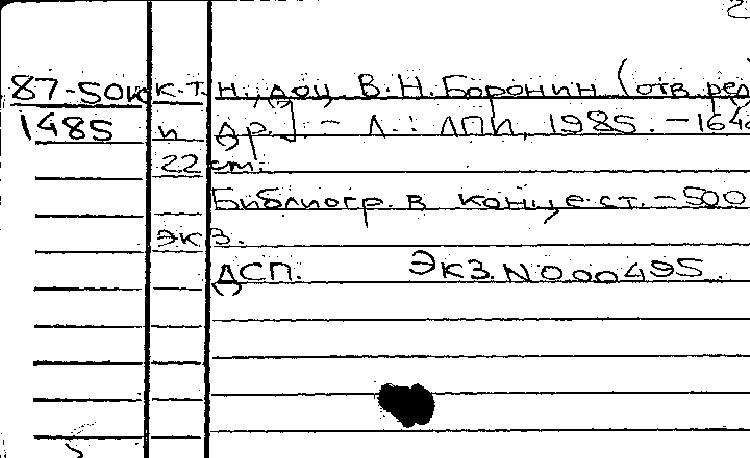 87-50к к.т.н., доц. В.Н. Боронин (отв. ред
1485 и др.]. - Л.: ЛПИ, 1985. - 164с
22 см.
Библиогр. в конце ст. - 500
экз.
ДСП. Экз. N 000495.